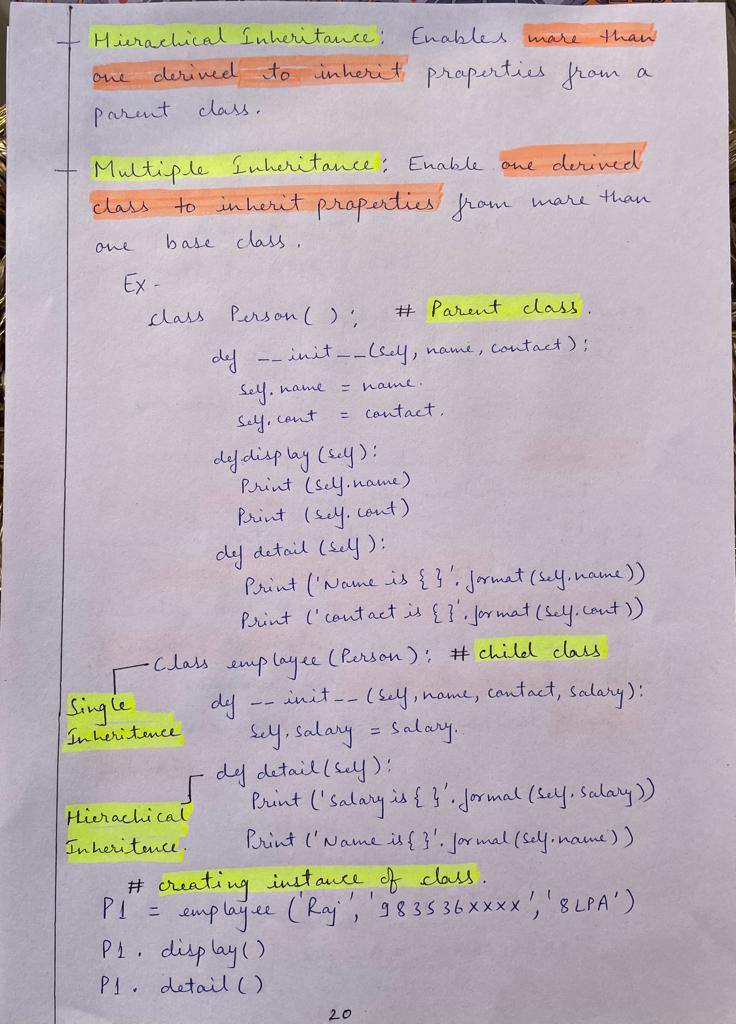 Hierachical Inheritance: Enables more than
one derived to inherit properties from a
parent class.
Multiple Inheritance: Enable one derived
class to inherit properties from more than
one base class.
Ex -
class Person( ): # Parent class.
def __init__(self, name, contact):
self.name = name.
self.cont = contact.
def display (self):
Print (self.name)
Print (self.cont)
def detail (self):
Print ('Name is { }'.format (self.name))
Print ('contact is { }'.format (self.cont))
Class employee (Person): # child class
Single
Inheritence
def __init__ (self, name, contact, salary):
self.salary = salary.
def detail (self):
Hierachical
Inheritence.
Print ('Salary is { }'.formal (self.salary))
Print ('Name is { }'.formal (self.name))
# creating instance of class.
P1 = employee ('Raj', '983536xxxx', '8LPA')
P1. display()
P1. detail()
20